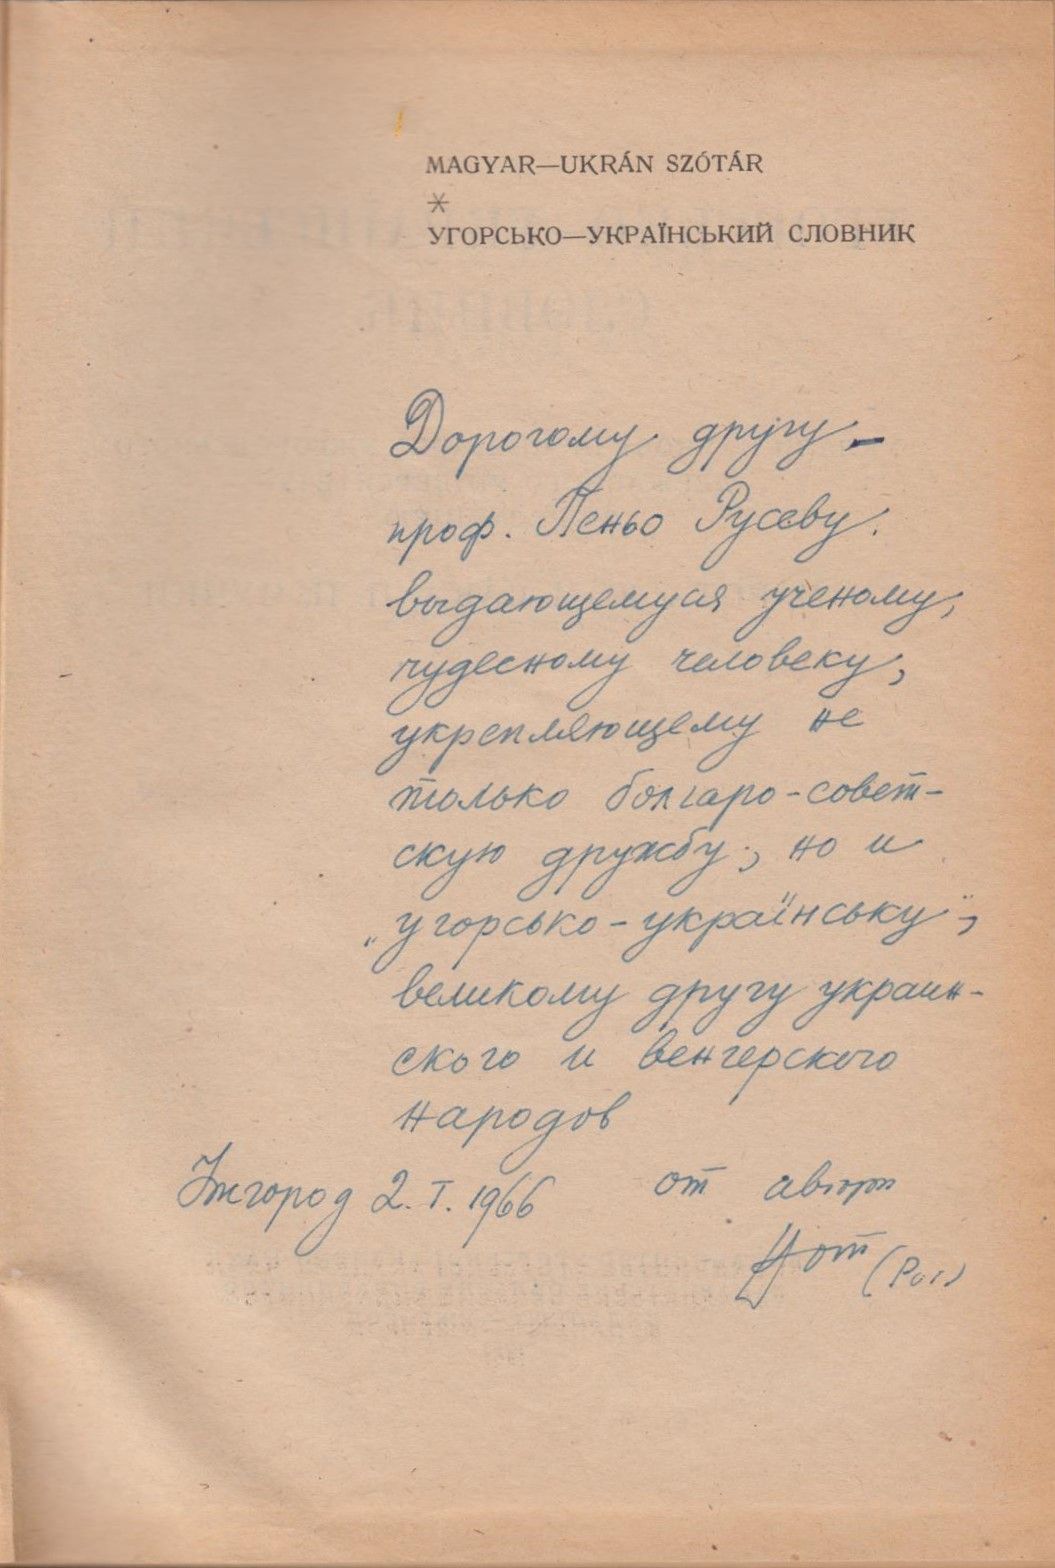 MAGYAR—UKRÁN SZÓTÁR
*
УГОРСЬКО—УКРАЇНСЬКИЙ СЛОВНИК
Дорогому другу –
проф. Пеньо Русеву.
выдающемуся ученому,
чудесному человеку,
укрепляющему не
только болгаро-совет-
скую дружбу, но и
„угорсько-українську",
великому другу украин-
ского и венгерского
народов
Ужгород 2.I.1966 от автора
(Рот)